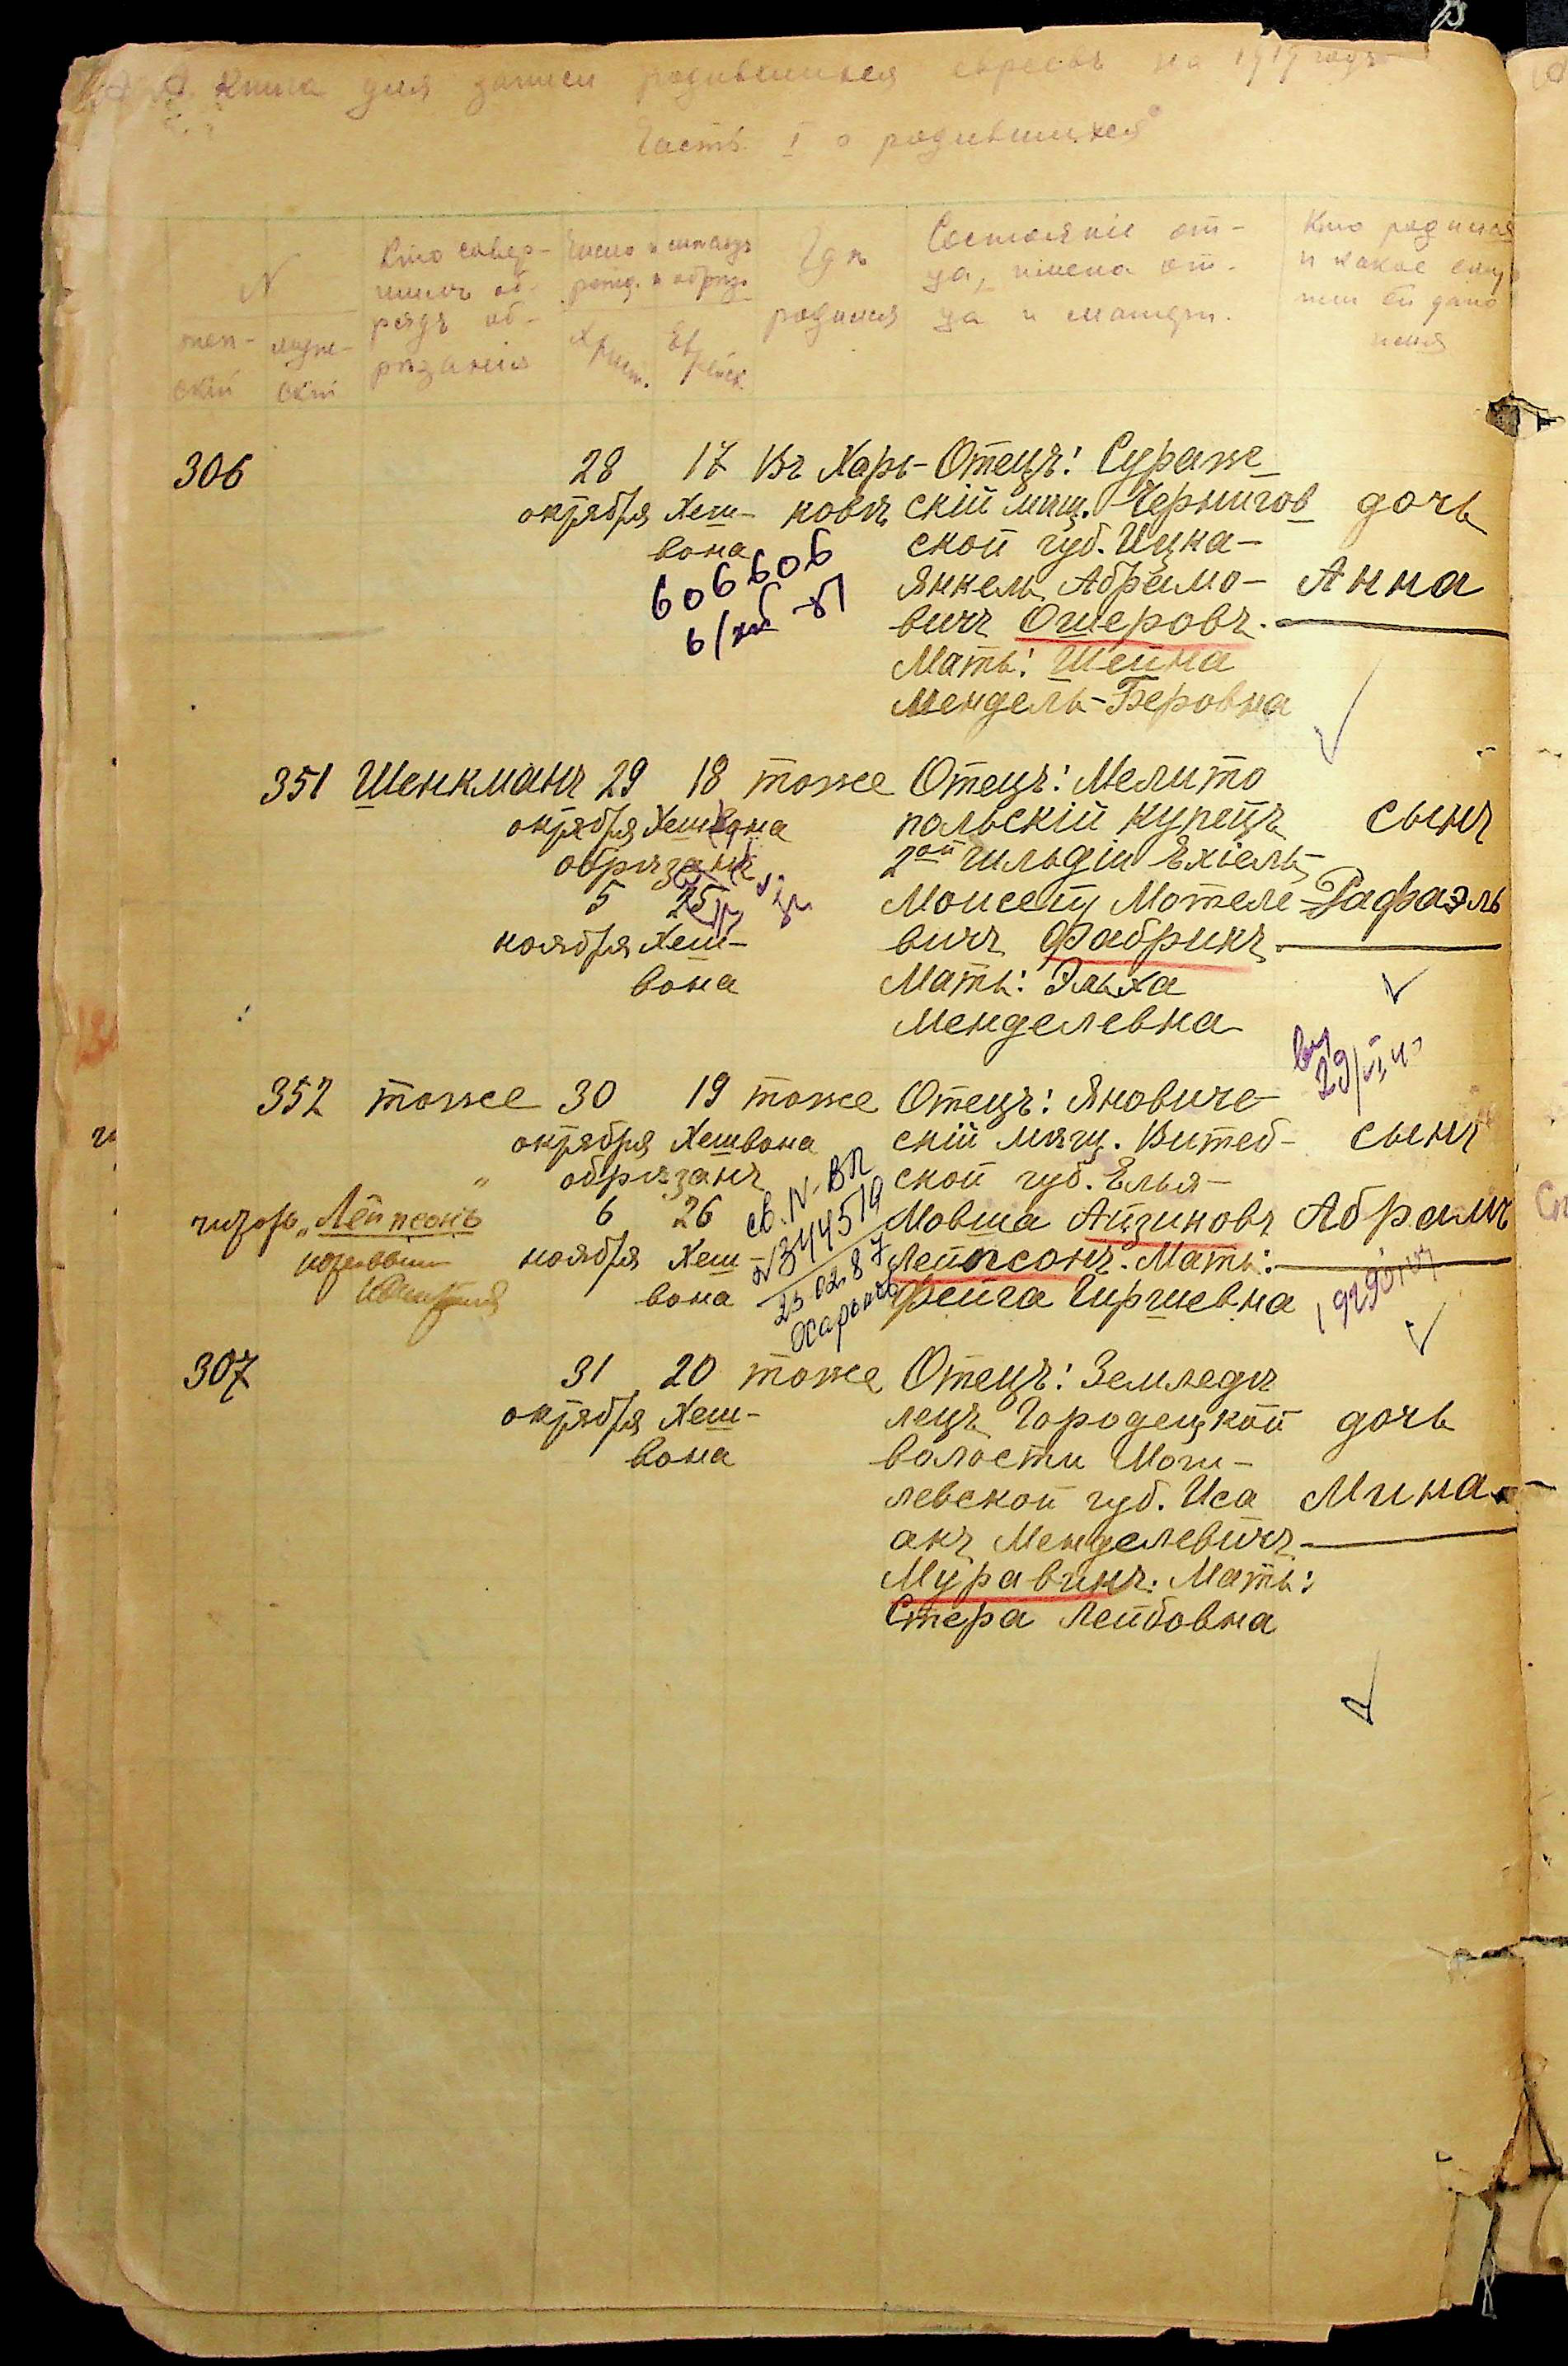 Книга для записи родившихся евреевъ на 1917 годъ
Часть I о родившихся
N
жен-
скій
мужс-
скій
Кто совер-
шилъ об-
рядъ об-
рѣзанія
Число и мѣсяцъ
рожд. и обрѣз.
Христ.
Еврейск.
Гдѣ
родился
Состояніе от-
ца, имена от-
ца и матери.
Кто родился
и какое ему
или ей дано
имя
306
28
октября
17
Хеш-
вона
Въ Харь-
ковѣ
Отецъ: Сураж-
скій мѣщ. Чернигов
ской губ. Ицка-
Янкель Абрамо-
вичъ Ошеровъ.
Мать: Шейна
Мендель-Беровна
дочь
Анна
606606
351
Шенкманъ
29
октября
18
Хешвона
обрѣзанъ
5
ноября
25
Хеш-
вона
тоже
Отецъ: Мелито
польскій купецъ
2ой гильдіи Ехіель-
Моисей Мотеле-
вичъ Фабрикъ.
Мать: Элька
Менделевна
сынъ
Рафаэль
352
тоже
30
октября
19
Хешвона
обрѣзанъ
6
ноября
26
Хеш-
вона
тоже
Отецъ: Яновиче-
скій мѣщ. Витеб-
ской губ. Елья-
Мовша Айзиковъ
Лейпсонъ. Мать:
Фейга Гиршевна
сынъ
Абрамъ
„Лейпсонъ
св. IV-ВЛ
№344519
25.02.87
Харьков
307
31
октября
20
Хеш-
вона
тоже
Отецъ: Земледѣ
лецъ Городецкой
волости Моги-
левской губ. Иса
акъ Менделевичъ
Муравинъ. Мать:
Стера Лейбовна
дочь
Мина